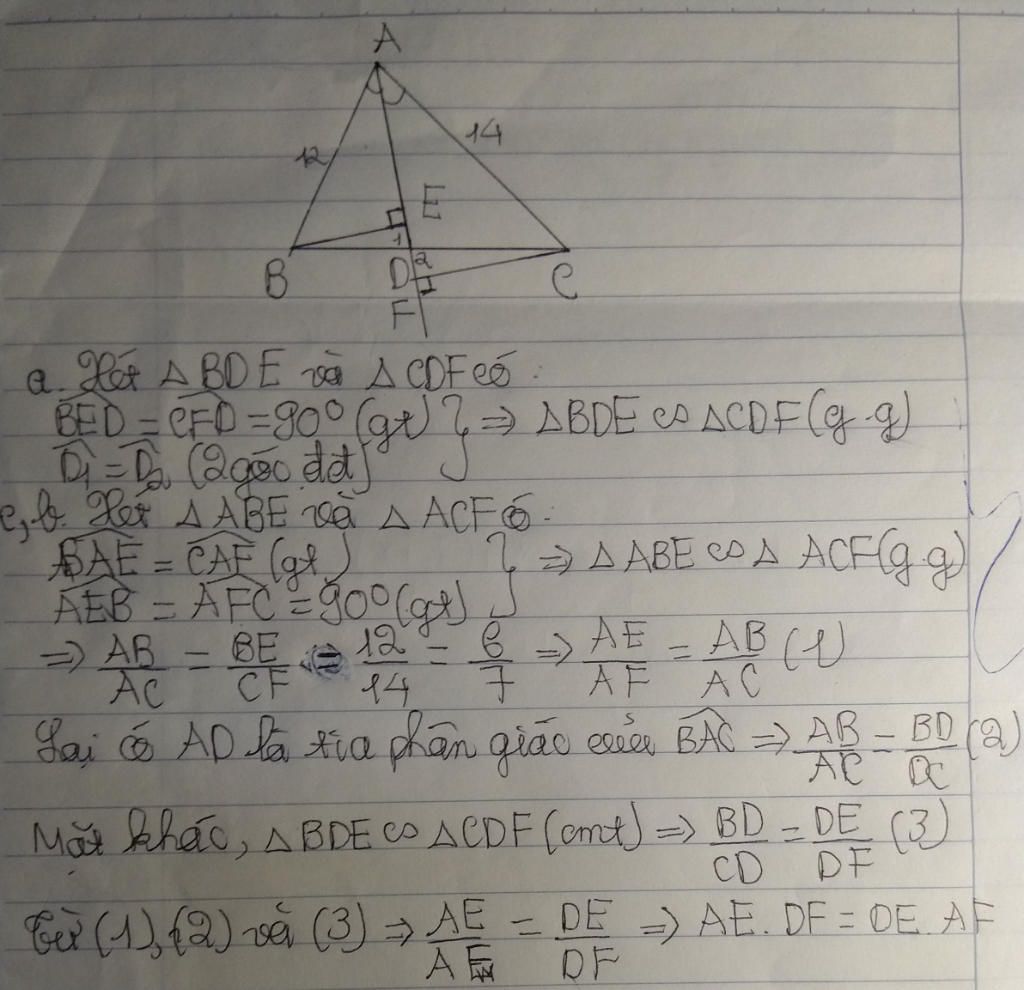 A
12
14
E
1
B
D
2
C
F
a. Xét △BDE và △CDF có:
$\widehat{BED} = \widehat{CFD} = 90^0$ (gt) } ⇒ △BDE ∽ △CDF (g.g)
$\widehat{D_1} = \widehat{D_2}$ (2 góc đđ)
c, b. Xét △ABE và △ACF có:
$\widehat{BAE} = \widehat{CAF}$ (gt) } ⇒ △ABE ∽ △ACF (g.g)
$\widehat{AEB} = \widehat{AFC} = 90^0$ (gt)
⇒ $\frac{AB}{AC} = \frac{BE}{CF} = \frac{12}{14} = \frac{6}{7}$ ⇒ $\frac{AE}{AF} = \frac{AB}{AC}$ (1)
Lại có AD là tia phân giác của $\widehat{BAC}$ ⇒ $\frac{AB}{AC} = \frac{BD}{DC}$ (2)
Mặt khác, △BDE ∽ △CDF (cmt) ⇒ $\frac{BD}{CD} = \frac{DE}{DF}$ (3)
Từ (1), (2) và (3) ⇒ $\frac{AE}{AF} = \frac{DE}{DF}$ ⇒ AE. DF = DE. AF